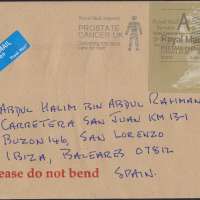 Royal Mail supports
PROSTATE
CANCER UK
A
Royal Mail
ABDUL HALIM BIN ABDUL RAHMAN
CARRETERA SAN JUAN KM 13·1
BUZON 146, SAN LORENZO
IBIZA, BALEARES 07812
ease do not bend
SPAIN.